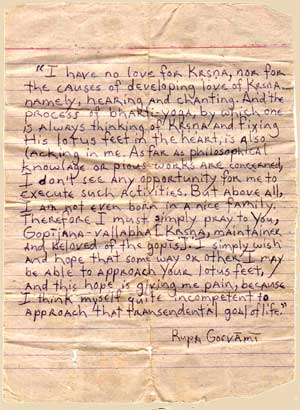 "I have no love for Krsna, nor for
the causes of developing love of Krsna
namely, hearing and chanting. And the
process of bhakti-yoga, by which one
is always thinking of Krsna and fixing
His lotus feet in the heart, is also
lacking in me. As far as philosophical
knowlage or pious works are concerned,
I don't see any opportunity for me to
execute such activities. But above all,
I am not even born in a nice family.
Therefore I must simply pray to You,
Gopijana-vallabha [Krsna, maintainer
and beloved of the gopis]. I simply wish
and hope that some way or other I may
be able to approach Your lotus feet,
and this hope is giving me pain, because
I think myself quite incompetent to
approach that transendental goal of life."
Rupa Gosvāmī